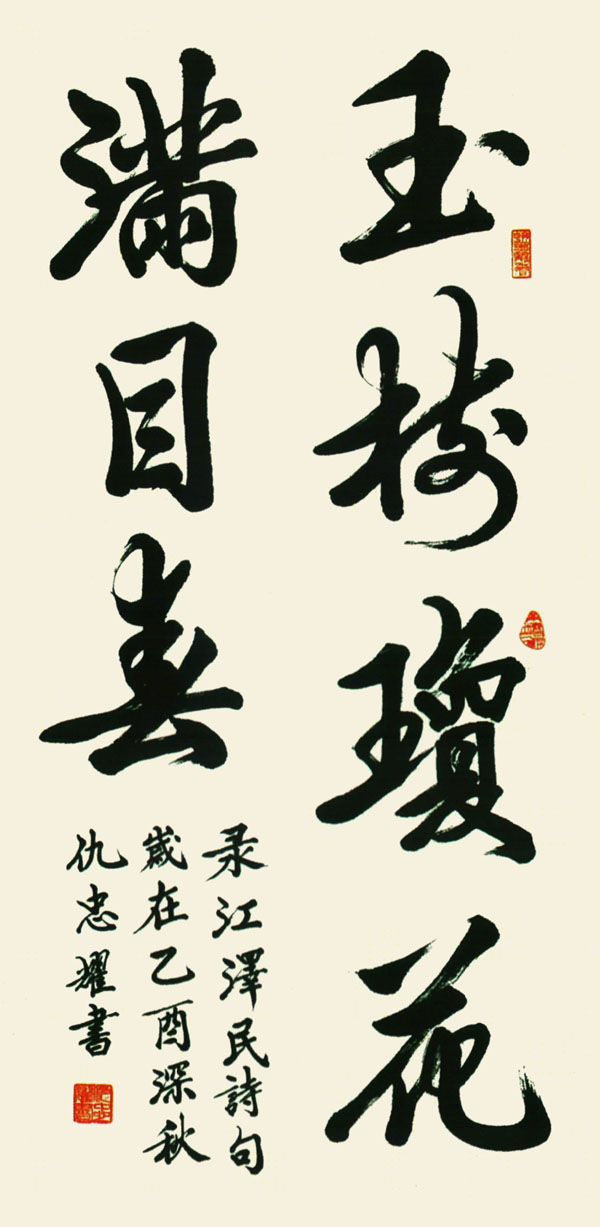 玉樹瓊花
滿目春
录江澤民詩句
歲在乙酉深秋
仇忠耀書